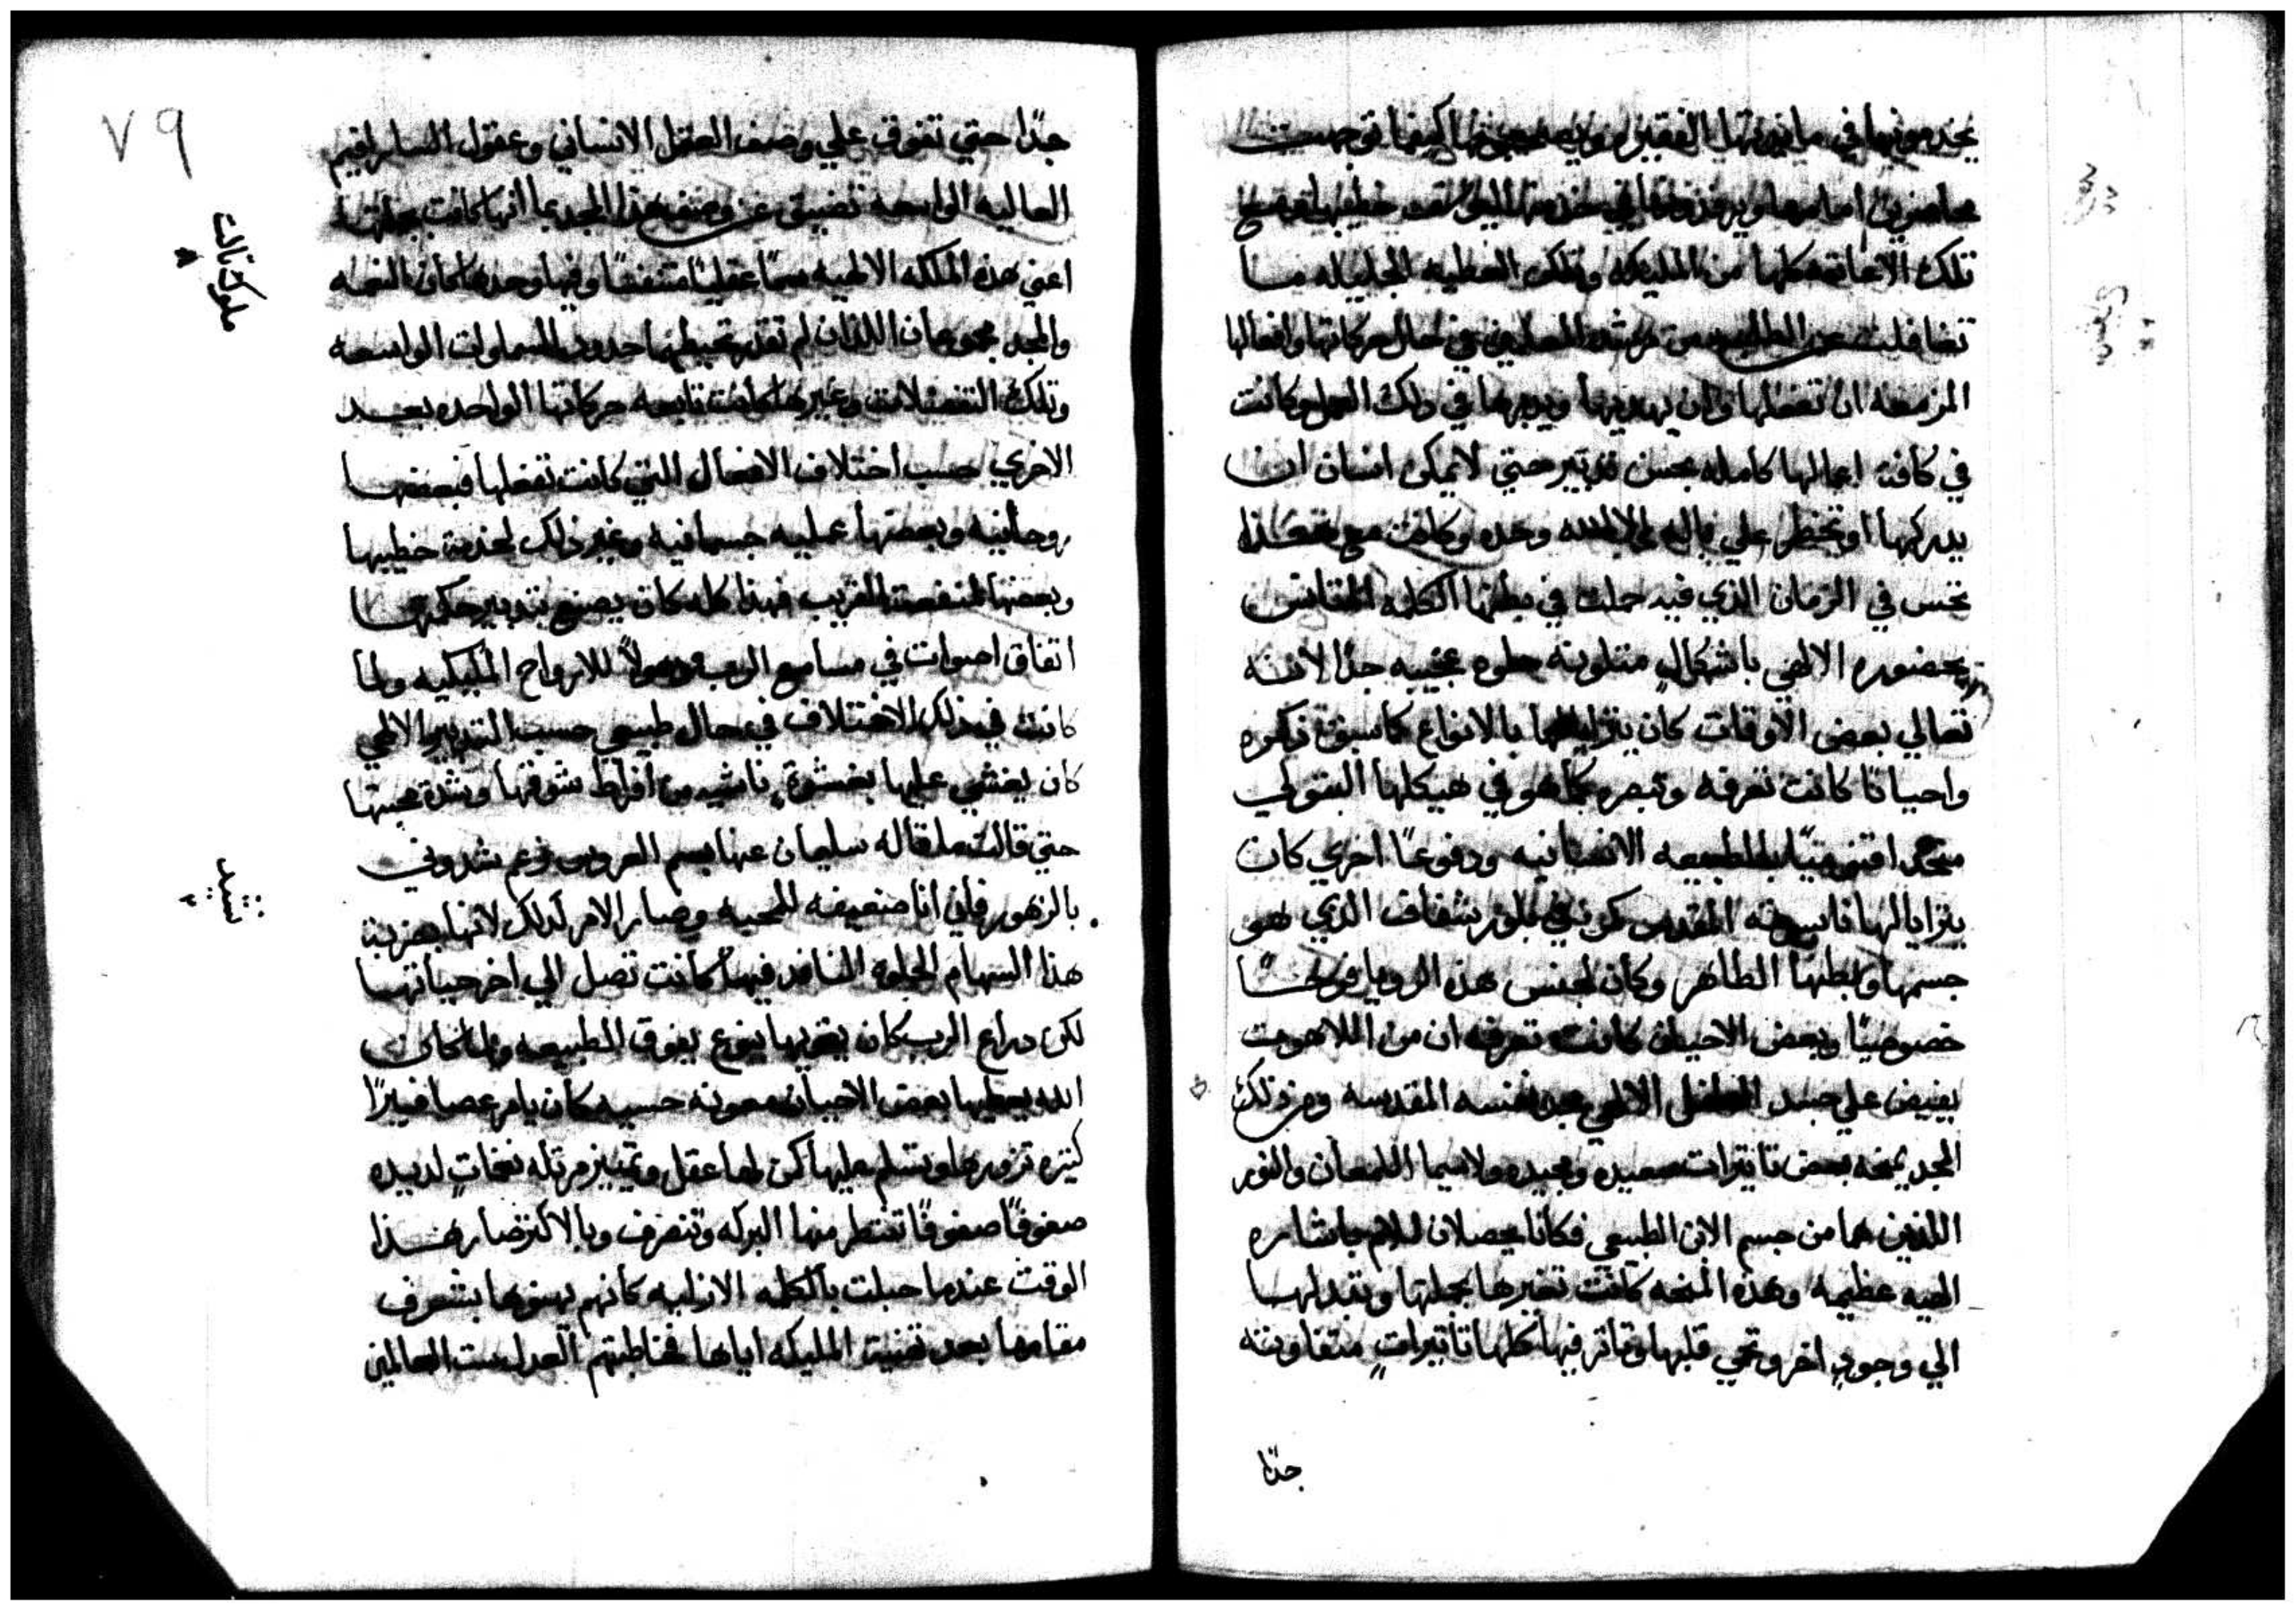 يخدمونها في مايدتها الفقيره ويصحبونها كيفما توجهت
تلك الاعانه كلها من المليكه وتلك العطيه الجليله ما
المزمعه ان تفعلها وان يهديها ويدبرها في ذلك
في كافة اعمالها كامله بحسن تدبير حتي لا يمكن انسان ان
يدركها او تخطر علي باله الا الله وحده وكانت مع هذا
تحس في الزمان الذي فيه حملت في بطنها الكلمه المتانس
بحضوره الالهي باشكالٍ متلونه حلوه عجيبه جدا لانه
تعالي بعض الاوقات كان يترايا لها بالانواع كما سبق ذكره
واحيانا كانت تعرفه وتبصره كما هو في هيكلها البتولي
متحد اقنوميًا بالطبيعه الانسانيه ودفوعًا اخري كان
يترايا لها ناسوته المقدس كمن في بلور شفاف الذي هو
جسمها وبطنها الطاهر وكان لجنس هذه الرويا فرحًا
خصوصيًا وبعض الاحيان كانت تعرفه ان من اللاهوت
يفيض علي جسد الطفل الالهي مجد نفسه المقدسه ومن ذلك
المجد يمنحه بعض تاثيرات سعيده ومجيده ولا سيما اللمعان والنور
اللذين هما من جسم الابن الطبيعي فكانا يحصلان للام باشاره
الهيه عظيمه وهذه المنحه كانت تغيرها بجملتها وتبدلها
الي وجودٍ اخر وتحي قلبها وتاثر فيها كلها تاثيراتٍ متفاوته
جدًا
٧٩
جدًا حتي تفوق علي وصف العقل الانساني وعقول السارافيم
العاليه الواسعه تضيق عن وصف هذا المجد بما انها كانت بجملتها
ملوك ثالث
٨
اعني هذه الملكه الالهيه سمًا عقليًا متنفسًا وفيها وحدها كان النعمه
والمجد مجموعان اللذان لم تقدر تحيط بهما حدود السماوات الواسعه
وتلك التفضلات وغيرها كانت تابعه حركاتها الواحده بعد
الاخري حسب اختلاف الافعال التي كانت تفعلها فبعضها
روحانيه وبعضها عمليه جسمانيه وغير ذلك لخدمة خطيبها
وبعضها لمنفعة القريب فهذا كله كان يصنع بتدبير حكمتها
اتفاق اصوات في مسامع الرب وذهولاً للارواح المليكيه ولما
كانت في ذلك الاختلاف في حال طبيعي حسب التدبير الالهي
كان يغشي عليها بغشوة ناشيه من افراط شوقها وشدة محبتها
حتي قالت ما قاله سليمان عنها بسم العروس نعم شدوني
نشيد
٢
بالزهور فاني انا ضعيفه للمحبه وصار الامر كذلك لانها بضربة
هذا السهام الحلوه النافده فيها كانت تصل الي اخر حياتها
لكن دراع الرب كان يقويها بنوع يفوق الطبيعه ولما كان
الله يعطيها بعض الاحيان معونه حسيه كان يامر عصافيرًا
كثيره تزورها وتسلم عليها كمن لها عقل وتمييز مرتله نغماتٍ لديده
صفوفًا صفوفًا تنتظر منها البركه وتنصرف وبالاكثر صار هذا
الوقت عندما حبلت بالكلمه الازليه كانهم يهنوها بشرف
مقامها بعد تهنية المليكه اياها فخاطبتهم العدل ست العالمين